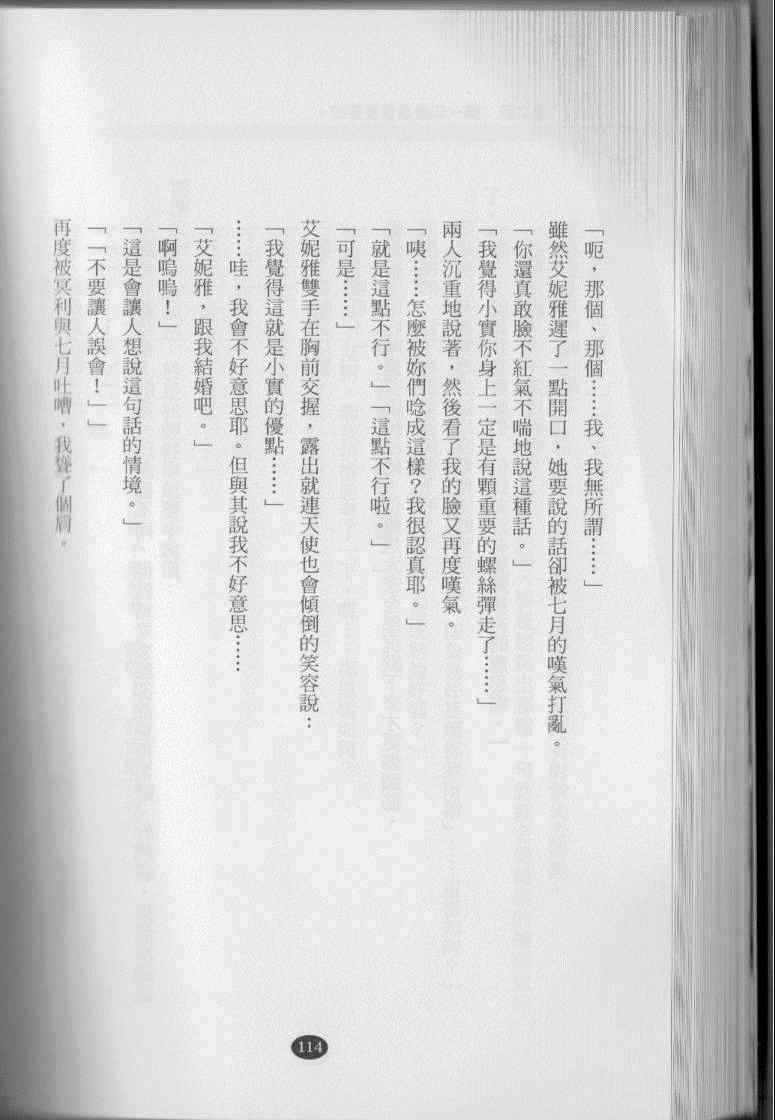 「呃，那個、那個……我、我無所謂……」
雖然艾妮雅遲了一點開口，她要說的話卻被七月的嘆氣打亂。
「你還真敢臉不紅氣不喘地說這種話。」
「我覺得小實你身上一定是有顆重要的螺絲彈走了……」
兩人沉重地說著，然後看了我的臉又再度嘆氣。
「咦……怎麼被妳們唸成這樣？我很認真耶。」
「就是這點不行。」「這點不行啦。」
「可是……」
艾妮雅雙手在胸前交握，露出就連天使也會傾倒的笑容說：
「我覺得這就是小實的優點……」
……哇，我會不好意思耶。但與其說我不好意思……
「艾妮雅，跟我結婚吧。」
「啊嗚嗚！」
「這是會讓人想說這句話的情境。」
「「不要讓人誤會！」」
再度被冥利與七月吐嘈，我聳了個肩。
114